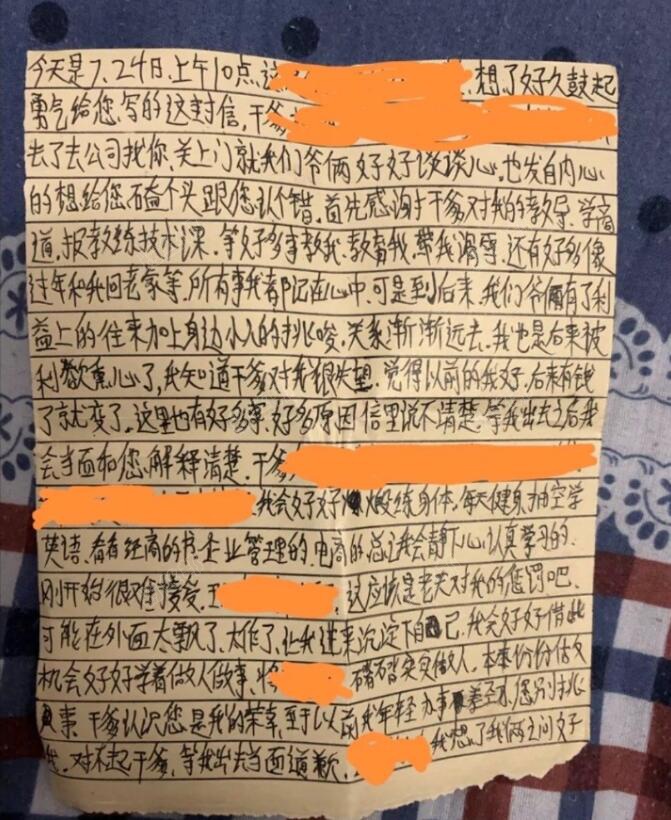 今天是7.24日.上午10点.这 想了好久鼓起
勇气给您.写的这封信.干爹
去了去公司找你.关上门就我们爷俩好好谈谈心.也发自内心
的想给您磕个头跟您认个错.首先感谢干爹对我的教导.学商
道.报教练技术课.等好多事教我.教育我.帮我 还有好多像
过年和我回老家等.所有事我都记在心中.可是到后来.我们爷俩有了利
益上的往来加上身边小人的挑唆.关系渐渐远去.我也是后来被
利欲熏心了.我知道干爹对我很失望.觉得以前的我好.后来有钱
了就变了.这里也有好多事.好多原因信里说不清楚.等我出去之后我
会当面和您.解释清楚.干爹
我会好好煅练身体.每天健身.抽空学
英语.看看经商的书.企业管理的.电商的.总之我会静下心.认真学习的.
刚开始很难接受. 这应该是老天对我的惩罚吧.
可能在外面太飘了.太作了.让我进来沉淀下自己.我会好好借此
机会好好学着做人做事. 踏踏实实做人.本本份份
事.干爹认识您是我的荣幸.至于以前我年轻办事 您别挑
我.对不起干爹.等我出去当面道歉. 我想了我俩之间好